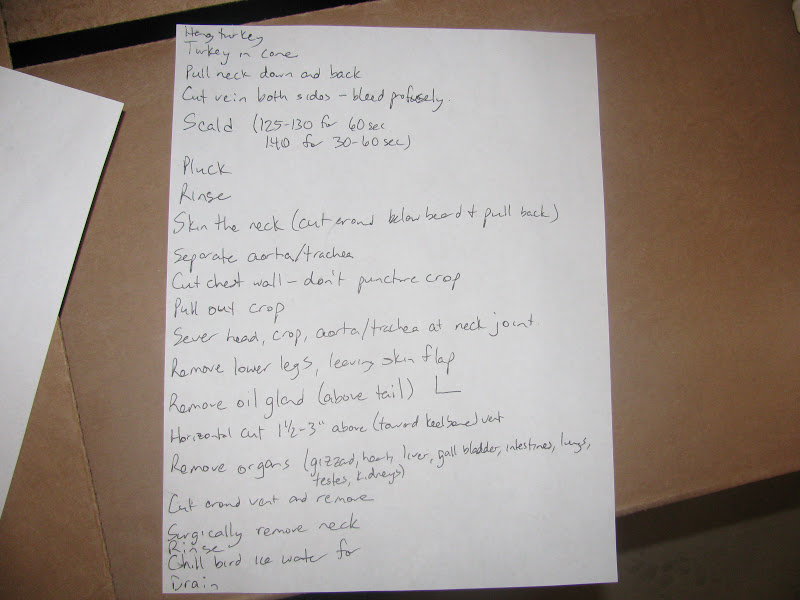 Hang turkey
Turkey in cone
Pull neck down and back
Cut vein both sides - bleed profusely.
Scald (125-130 for 60 sec
140 for 30-60 sec)
Pluck
Rinse
Skin the neck (cut around below beard + pull back)
Separate aorta/trachea
Cut chest wall - don't puncture crop
Pull out crop
Sever head, crop, aorta/trachea at neck joint.
Remove lower legs, leaving skin flap
Remove oil gland (above tail)
Horizontal cut 1½-3" above (toward keelbone) vent
Remove organs (gizzad, heart, liver, gall bladder, intestines, lungs,
testes, kidneys)
Cut around vent and remove
Surgically remove neck
Rinse
Chill bird ice water for
Drain